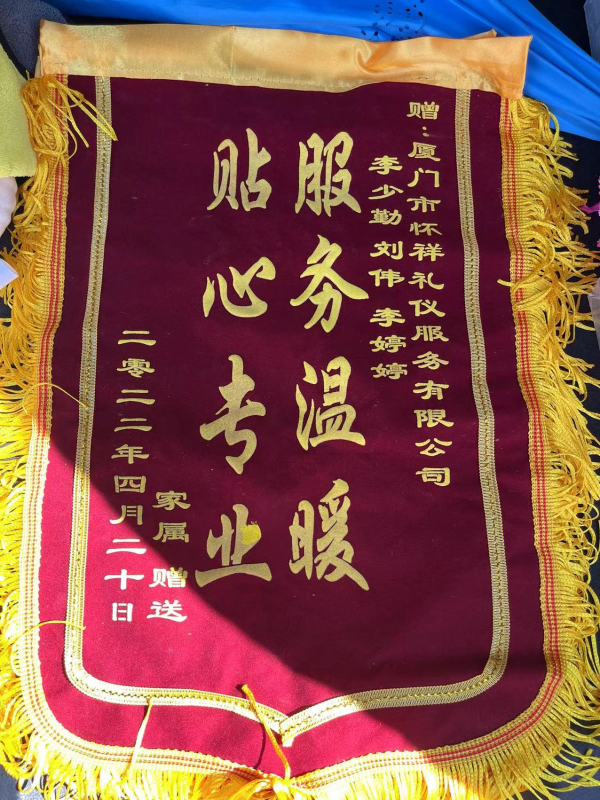 赠：厦门市怀祥礼仪服务有限公司
李少勤 刘伟 李婷婷
服务温暖
贴心专业
家属 赠送
二零二二年四月二十日